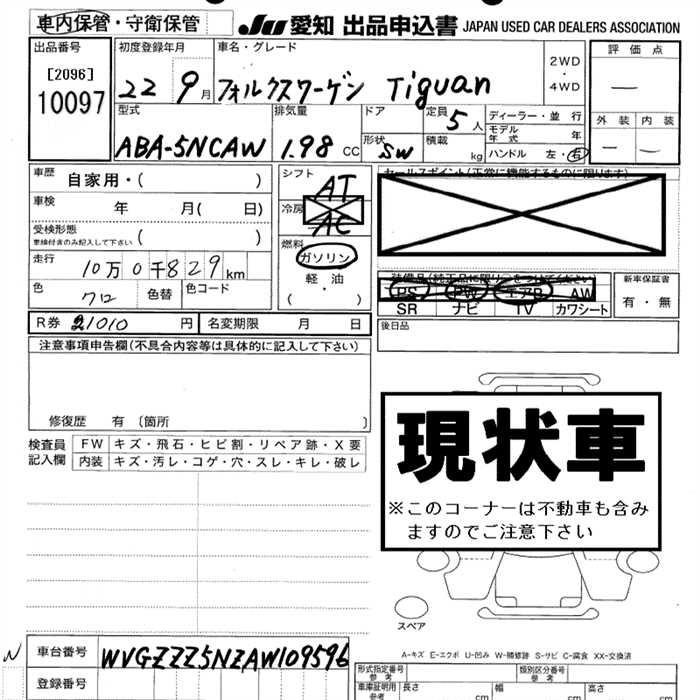 車内保管・守衛保管
JU 愛知 出品申込書 JAPAN USED CAR DEALERS ASSOCIATION
出品番号
[2096]
10097
初度登録年月
22 9月
車名・グレード
フォルクスワーゲン Tiguan
2WD
・
4WD
評価点
—
外装 内装
— —
型式
ABA-5NCAW
排気量
1.98 CC
ドア
形状
SW
定員
5人
積載
kg
ディーラー・並行
モデル年式 年
ハンドル 左・右
車歴
自家用・( )
車検
年 月( 日)
受検形態
車検付含のみ記入して下さい
( )
走行
10万0千829km
色
クロ
色替
色コード
シフト
AT
冷房
AC
燃料
ガソリン
軽・油
( ・ )
セールスポイント(正常に機能するものに限ります)
装備品(純正品に限り○をつけてください)
PS PW エアB AW
SR ナビ TV カワシート
新車保証書
有・無
R券 21010 円
名変期限 月 日
後日品
注意事項申告欄(不具合内容等は具体的に記入して下さい)
修復歴 有 〔箇所 〕
検査員
記入欄
FW キズ・飛石・ヒビ割・リペア跡・X要
内装 キズ・汚レ・コゲ・穴・スレ・キレ・破レ
現状車
※このコーナーは不動車も含み
ますのでご注意下さい
スペア
A-キズ E-エクボ U-凹み W-補修跡 S-サビ C-腐食 XX-交換済
N
車台番号
WVGZZZ5NZAW109596
登録番号
形式指定番号
参考
類別区分番号
参考
車庫証明用
参考
長さ cm
幅 cm
高さ cm